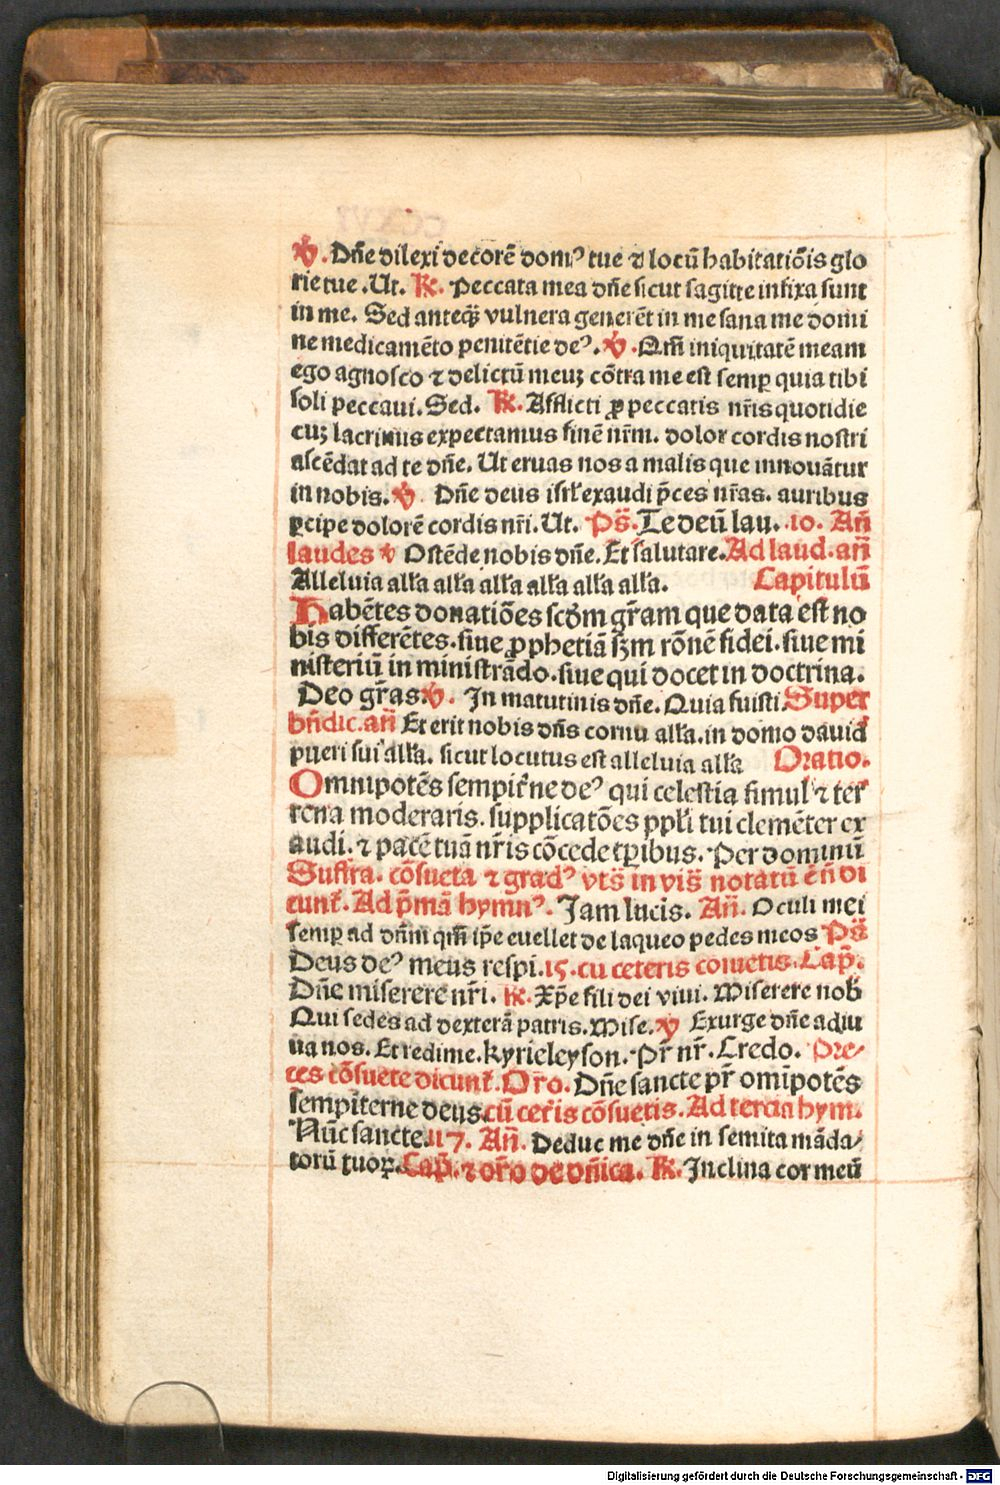 ℣. Dñe dilexi decorē domꝰ tue ⁊ locū habitatiōis glo
rie tue. Ut. ℟. Peccata mea dñe sicut sagitte infixa sunt
in me. Sed anteq̄ vulnera generēt in me sana me domi
ne medicamēto penitētie deꝰ. ℣. Qm̄ iniquitatē meam
ego agnosco ⁊ delictū meuꝫ cōtra me est semꝑ quia tibi
soli peccaui. Sed. ℟. Afflicti ꝓ peccatis nr̄is quotidie
cuꝫ lacrimis expectamus finē nr̄m. dolor cordis nostri
ascēdat ad te dñe. Ut eruas nos a malis que innouātur
in nobis. ℣. Dñe deus isrl̄ exaudi p̄ces nr̄as. auribus
ꝑcipe dolorē cordis nr̄i. Ut. Ps̄. Te deū lau. .10. Añ
laudes ℣ Ostēde nobis dñe. Et salutare. Ad laud. añ
Alleluia all̄a all̄a all̄a all̄a all̄a all̄a. Capitulū
Habētes donatiōes scd̄m gr̄am que data est no
bis differētes. siue ꝓphetiā sꝫm rōnē fidei. siue mi
nisteriū in ministrādo. siue qui docet in doctrina.
Deo gr̄as. ℣. In matutinis dñe. Quia fuisti. Super
bñdic. añ Et erit nobis dñs cornu all̄a. in domo dauid
pueri sui all̄a. sicut locutus est alleluia all̄a Oratio.
Omnipotēs sempit̄ne deꝰ qui celestia simul ⁊ ter
rena moderaris. supplicatōes ppl̄i tui clemēter ex
audi. ⁊ pacē tuā nr̄is cōcede tꝑibus. Per dominū
Suffra. cōsueta ⁊ gradꝰ vts̄ in vis̄ notatū ēñ di
cunt̄. Ad p̄mā hymnꝰ. Iam lucis. Añ. Oculi mei
semꝑ ad dñm qm̄ ip̄e euellet de laqueo pedes meos Ps̄
Deus deꝰ meus respi. 15. cu ceteris cōuetis. Cap̄.
Dñe miserere nr̄i. ℟. Xp̄e fili dei viui. Miserere nob̄
Qui sedes ad dexterā patris. Mise. ℣ Exurge dñe adiu
ua nos. Et redime. kyrieleyson. Pr̄ nr̄. Credo. Pre⸗
ces cōsuete dicunt̄. Or̄o. Dñe sancte pr̄ omīpotēs
sempiterne deus. cū cet̄is cōsuetis. Ad tercia hym.
Nūc sancte. 117. Añ. Deduc me dñe in semita māda⸗
torū tuoꝝ. Cap̄. ⁊ or̄o de dñica. ℟. Inclina cor meū
Digitalisierung gefördert durch die Deutsche Forschungsgemeinschaft - DFG